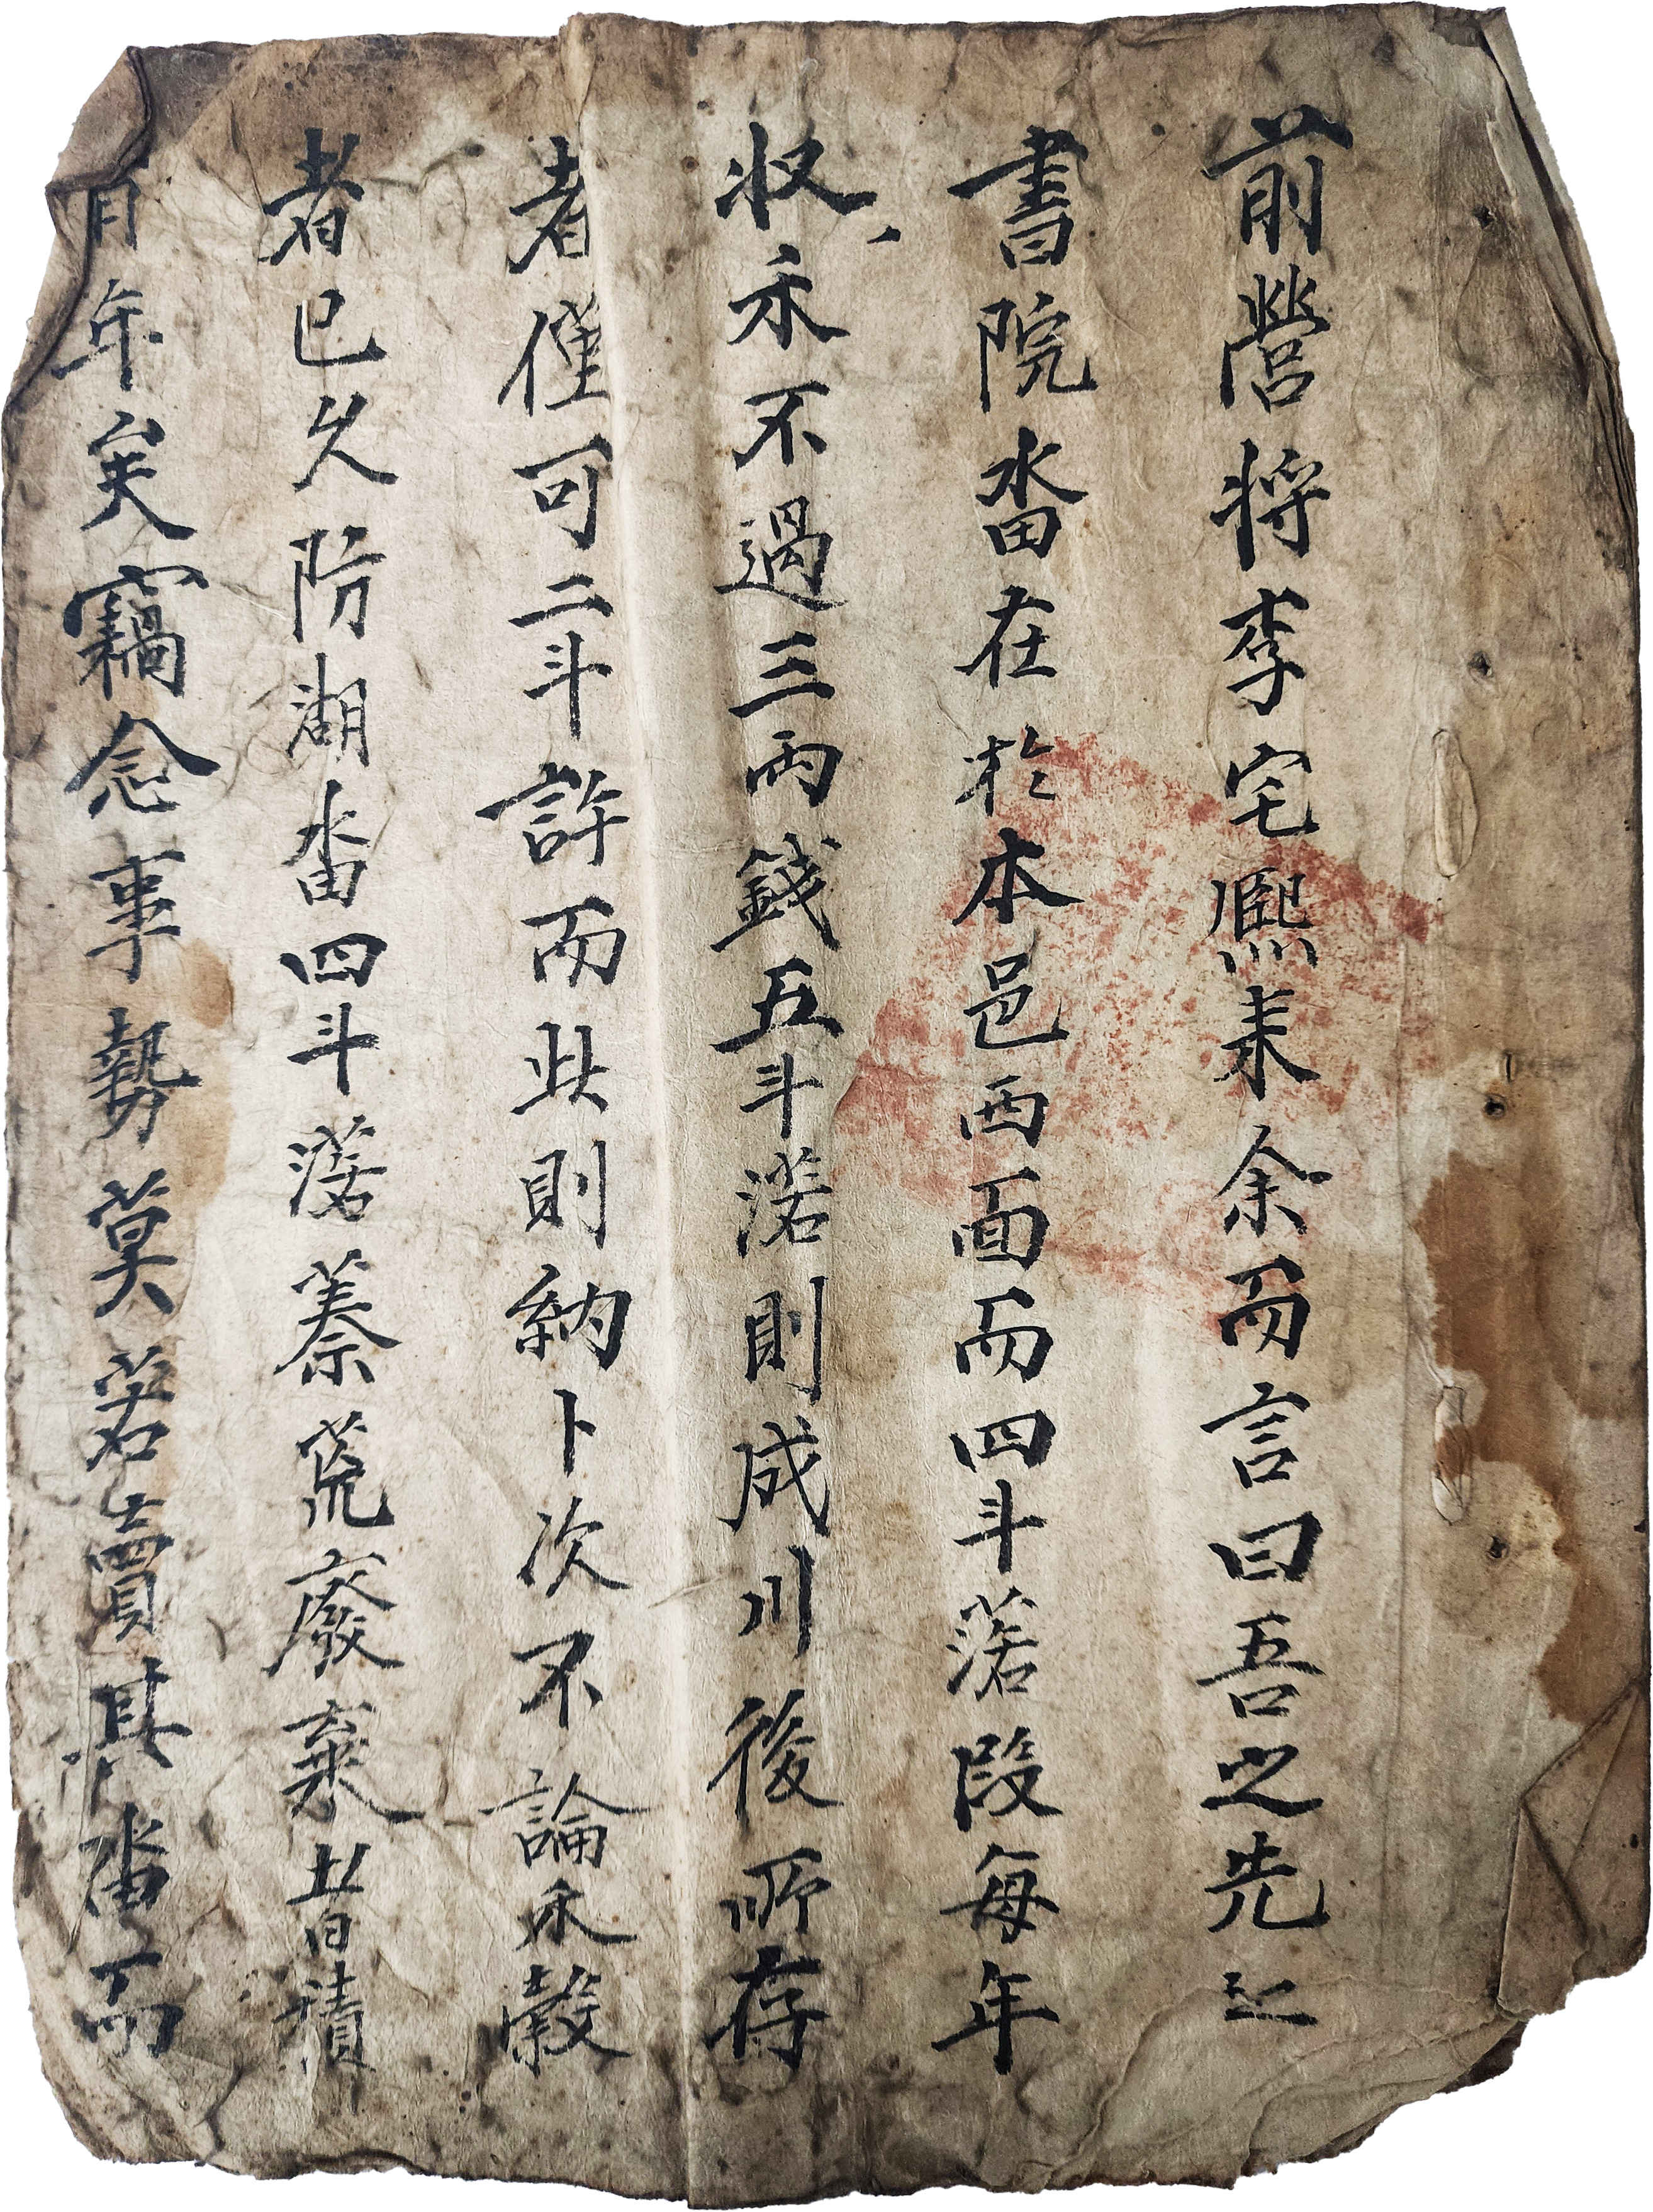 前營將李宅熙來余而言曰吾之先己
書院畓在於本邑西面而四斗落段每年
收禾不過三兩錢五斗落則成川後所存
者僅可二斗許而此則納卜次不論禾穀
者已久防湖畓四斗落蓁荒廢棄昔積
有年矣竊念事勢莫若賣其畓而